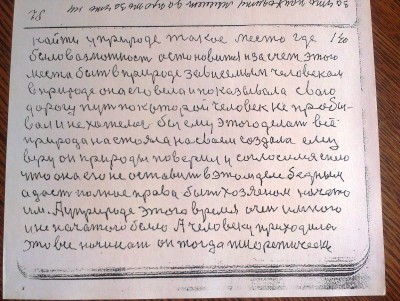 82
130
найти у природе такое место где
было возможност остоновится и за счет этого
места быт в природе зависемым человекам
в природе она его вела и показывала свою
дорогу пут по каторой человек не пробы-
вал и не хателас бы ему этого делат всё
природа настояла на своем создала ему
веру он природы поверил и согласился с нею
что она его не оставит в этом деле бедным
а даст полное права быт хозяеном начато
им. А у природе этого время очен и много
и не начатой было А человеку приходила
это все начинат он тогда теоретическе